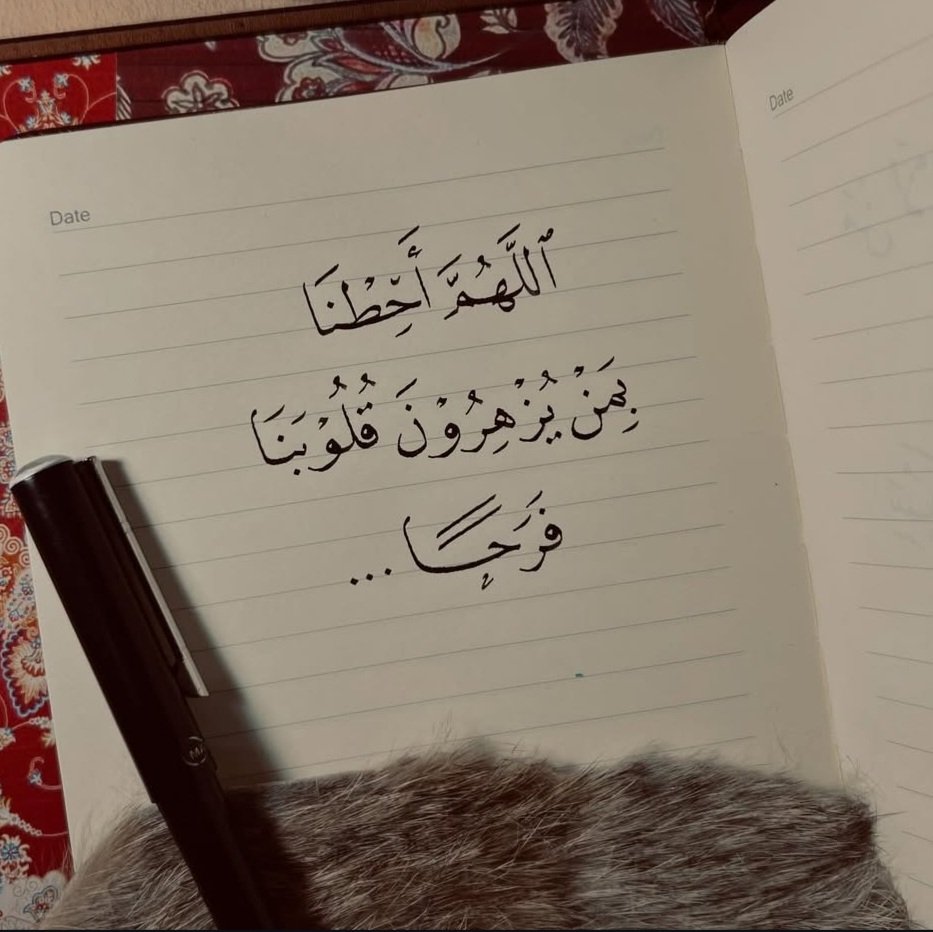 Date
Date
ٱللَّهُمَّ أَحِطْنَا
بِمَنْ يُزْهِرُوْنَ قُلُوْبَنَا
فَرَحًا...